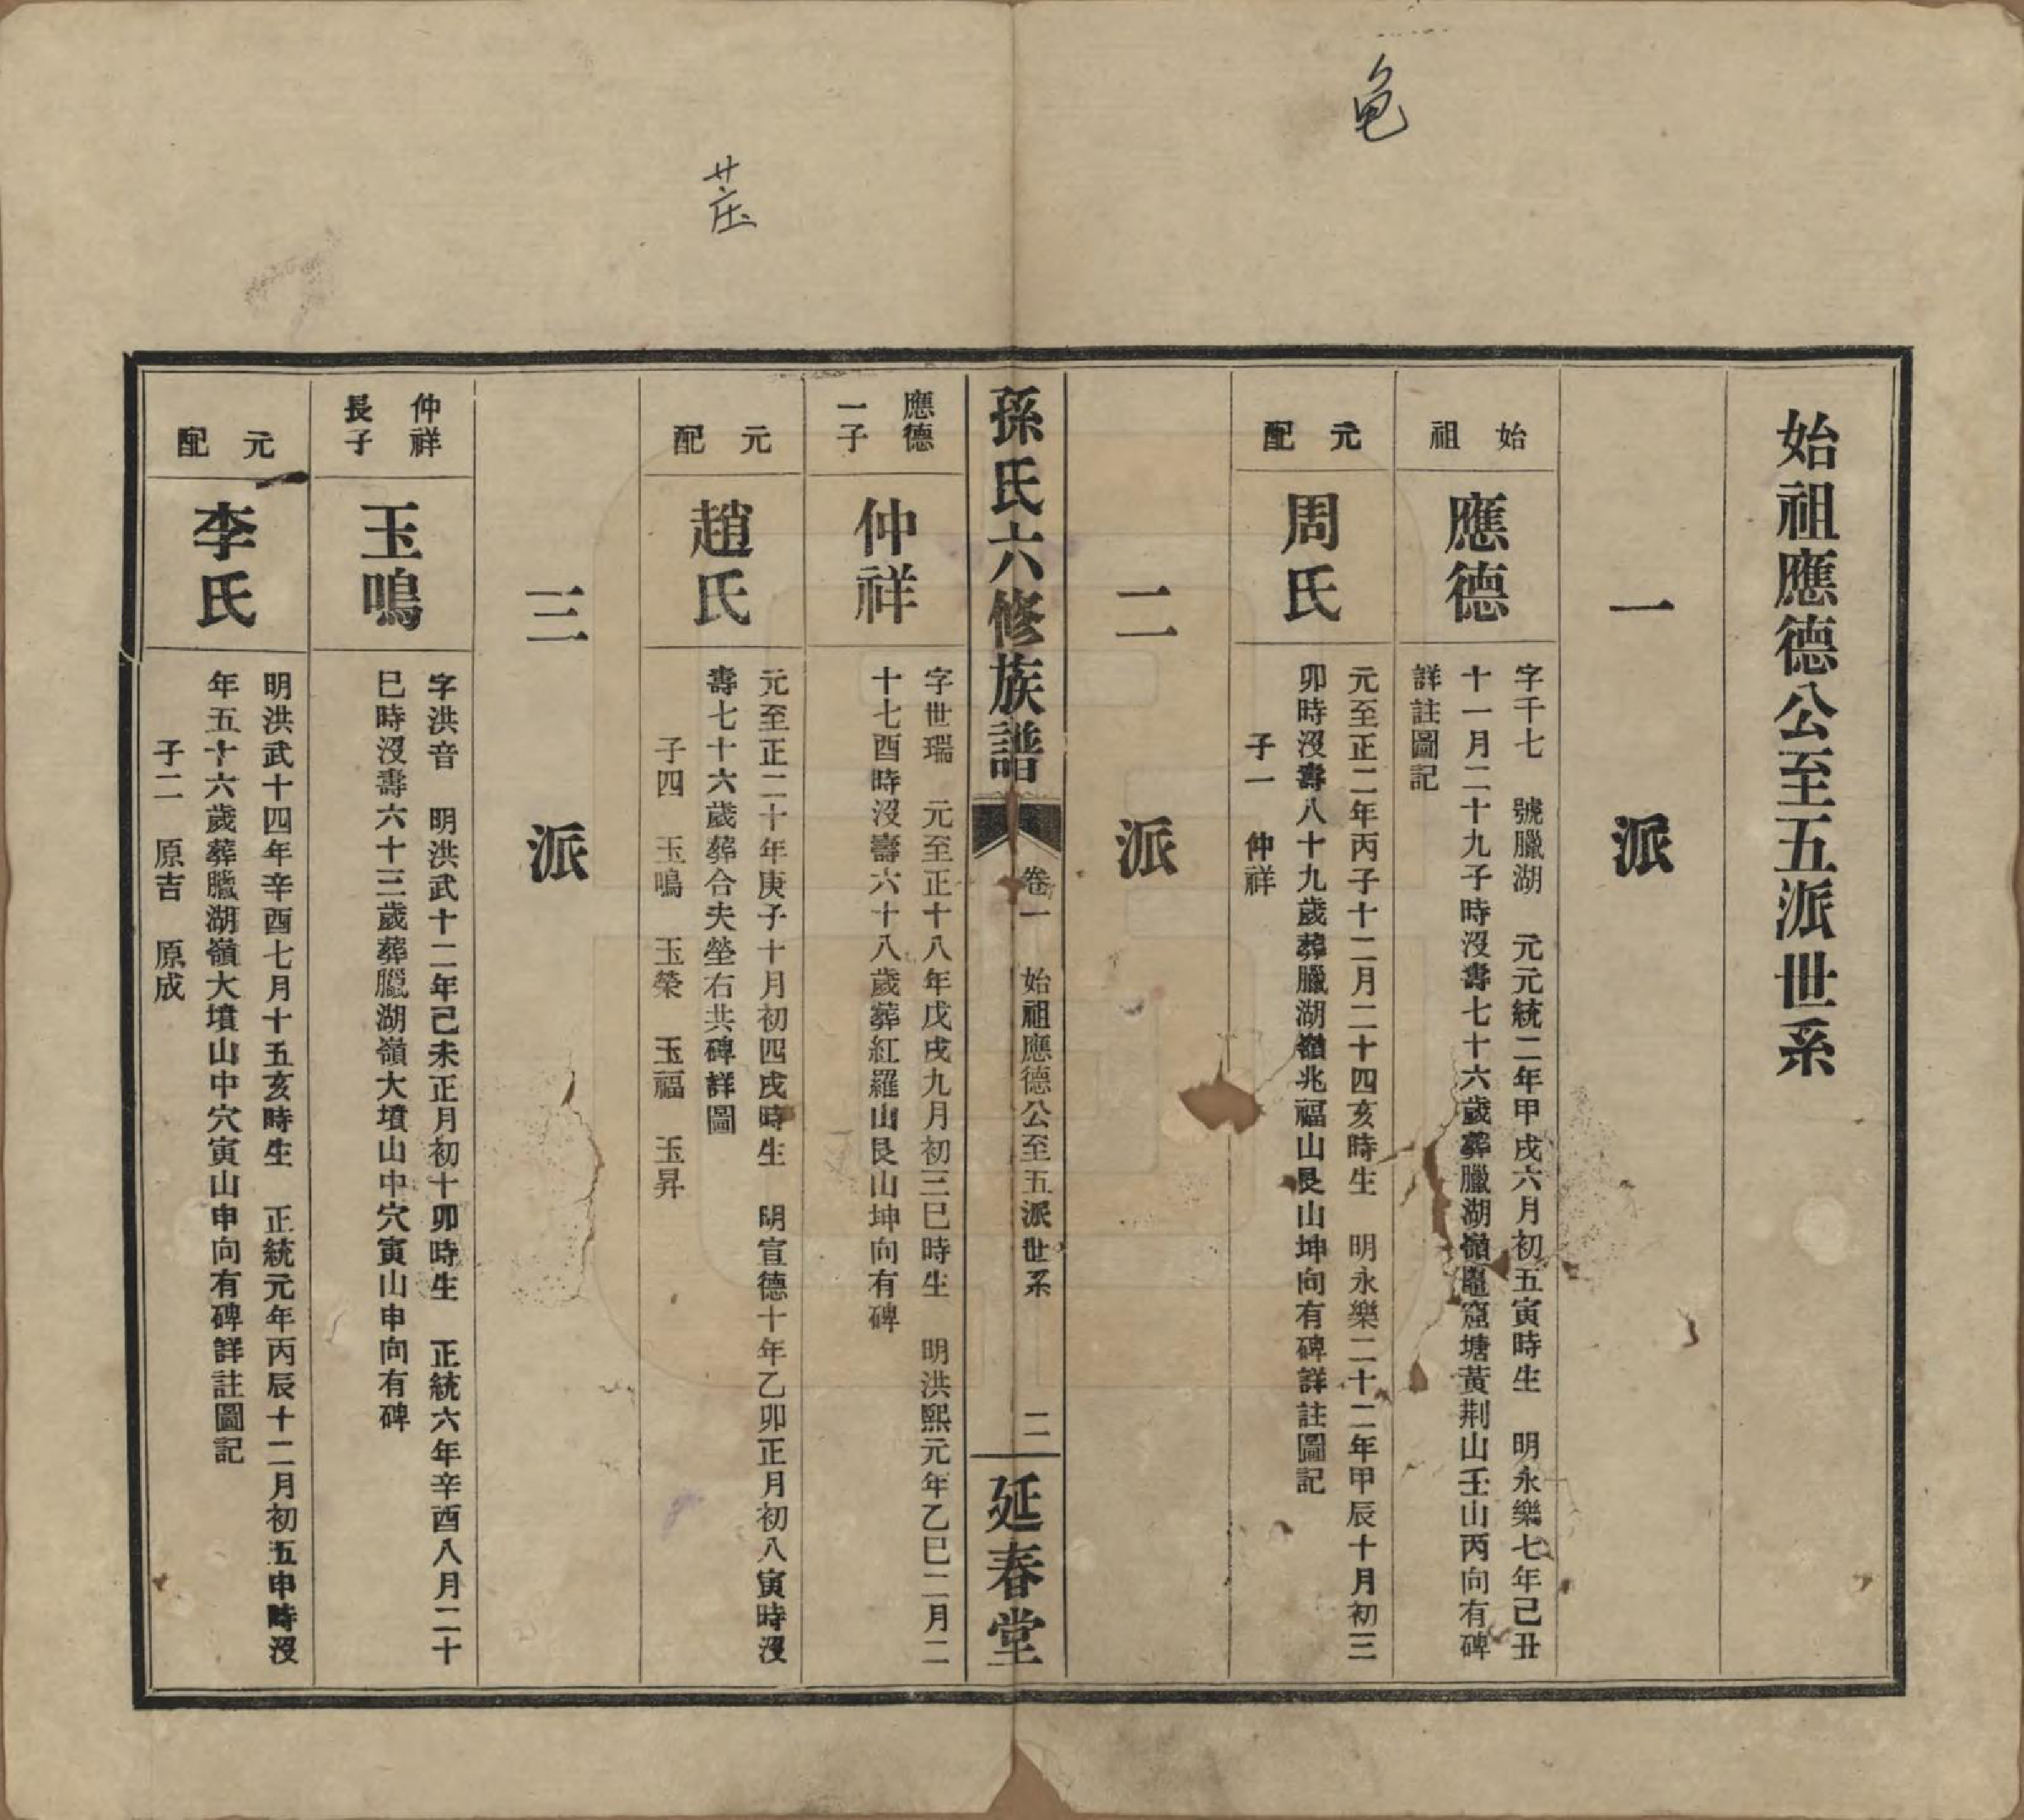 始祖應德公至五派世系
一派
始祖
應德
字千七　號臘湖　元元統二年甲戌六月初五寅時生　明永樂七年己丑
十一月二十九子時沒壽七十六歲葬臘湖嶺龜窟塘黃荆山壬山丙向有碑
詳註圖記
元配
周氏
元至正二年丙子十二月二十四亥時生　明永樂二十二年甲辰十月初三
卯時沒壽八十九歲葬臘湖嶺兆福山艮山坤向有碑詳註圖記
子一　仲祥
二派
孫氏六修族譜
卷一　始祖應德公至五派世系
二
延春堂
應德
一子
仲祥
字世瑞　元至正十八年戊戌九月初三巳時生　明洪熙元年乙巳二月二
十七酉時沒壽六十八歲葬紅羅山艮山坤向有碑
元配
趙氏
元至正二十年庚子十月初四戌時生　明宣德十年乙卯正月初八寅時沒
壽七十六歲葬合夫塋右共碑詳圖
子四　玉鳴　玉榮　玉福　玉昇
三派
仲祥
長子
玉鳴
字洪音　明洪武十二年己未正月初十卯時生　正統六年辛酉八月二十
巳時沒壽六十三歲葬臘湖嶺大墳山中穴寅山申向有碑
元配
李氏
明洪武十四年辛酉七月十五亥時生　正統元年丙辰十二月初五申時沒
年五十六歲葬臘湖嶺大墳山中穴寅山申向有碑詳註圖記
子二　原吉　原成